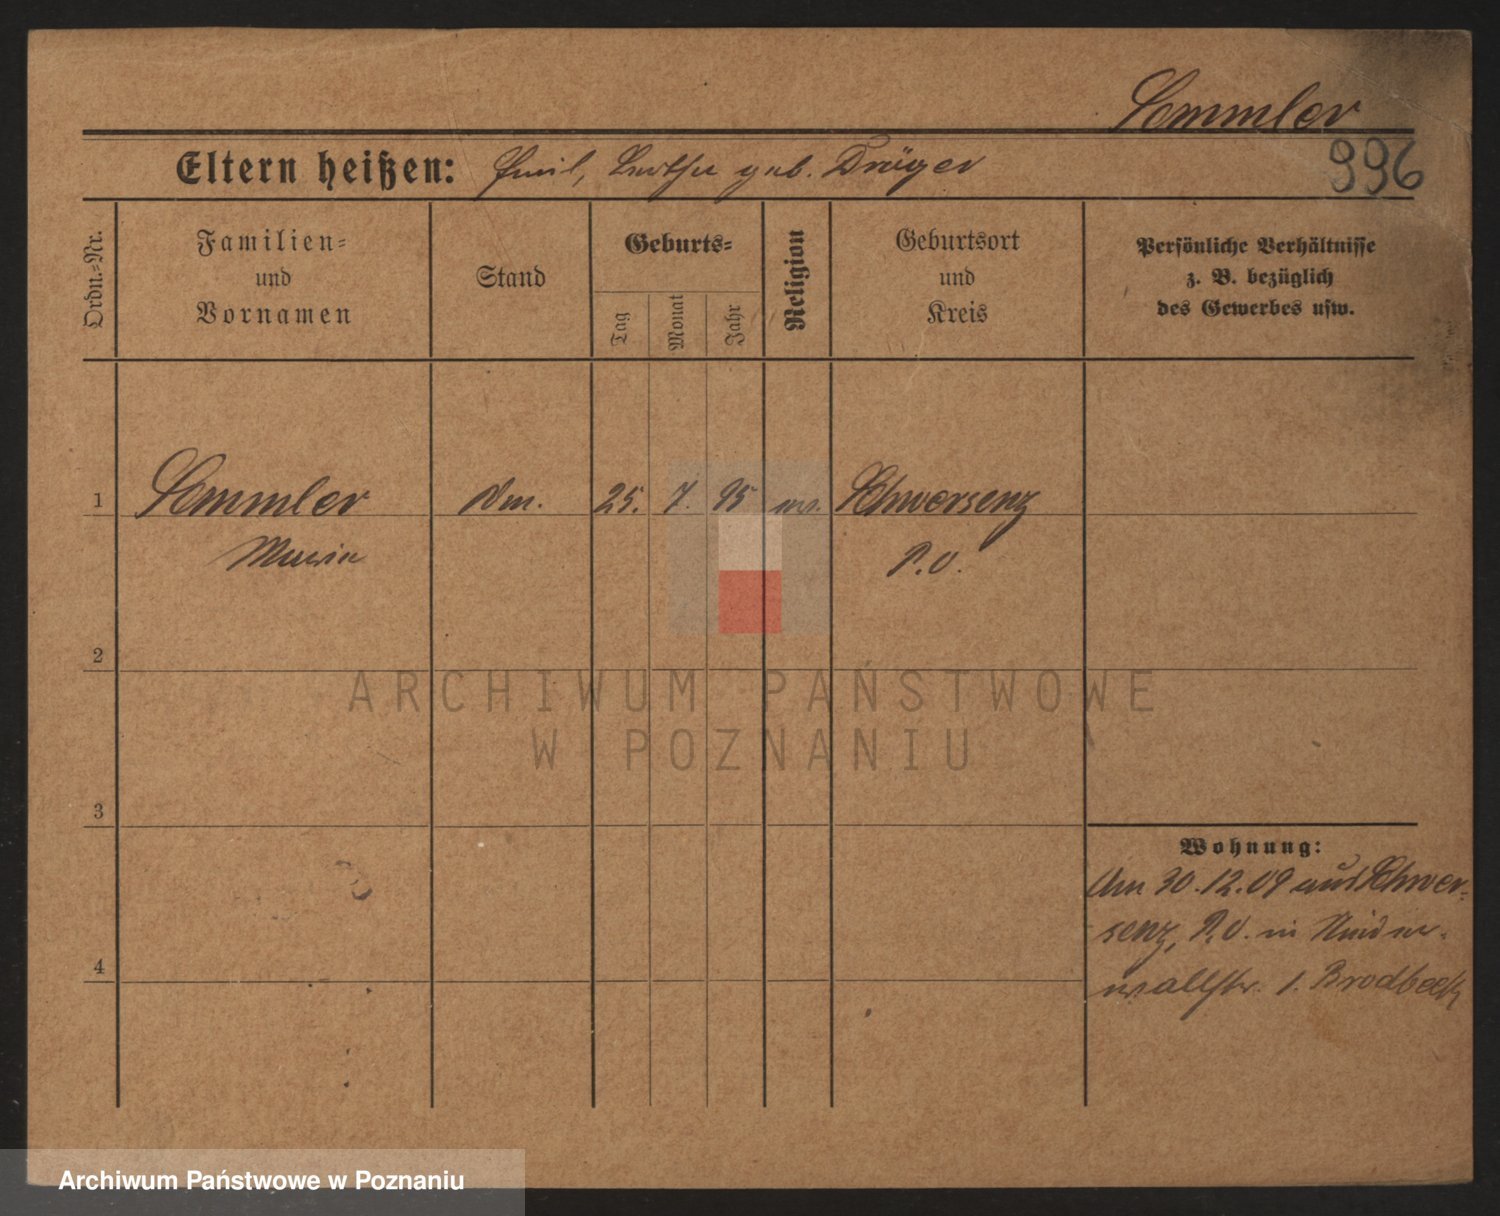 Semmler
996
Eltern heißen: Emil, Bertha geb. Dräger
Ordn.-Nr.
Familien-
und
Vornamen
Stand
Geburts-
Tag
Monat
Jahr
Religion
Geburtsort
und
Kreis
Persönliche Verhältnisse
z. B. bezüglich
des Gewerbes usw.
1 Semmler 25. 7. 95 Schwersenz
Maria P. O.
2
ARCHIWUM PAŃSTWOWE
W POZNANIU
3
Wohnung:
Am 30.12.09 aus Schwer-
senz, P. O. in
4
wallstr. 1. Brodbeck
Archiwum Państwowe w Poznaniu